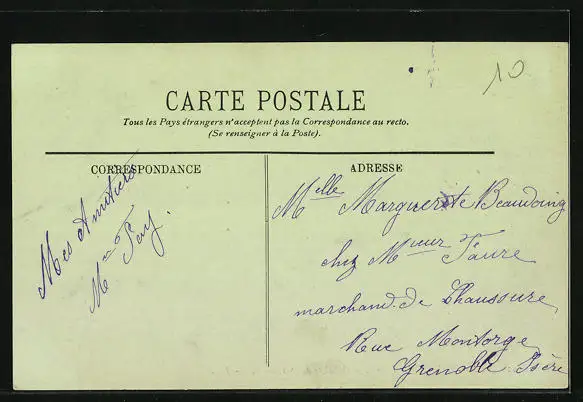 10
CARTE POSTALE
Tous les Pays étrangers n'acceptent pas la Correspondance au recto.
(Se renseigner à la Poste).
CORRESPONDANCE
Mes Amitiés
M
ADRESSE
Melle Marguerite Beaudoing
chez Mieur Faure
marchand de Chaussure
Rue Montorge
Grenoble Isère